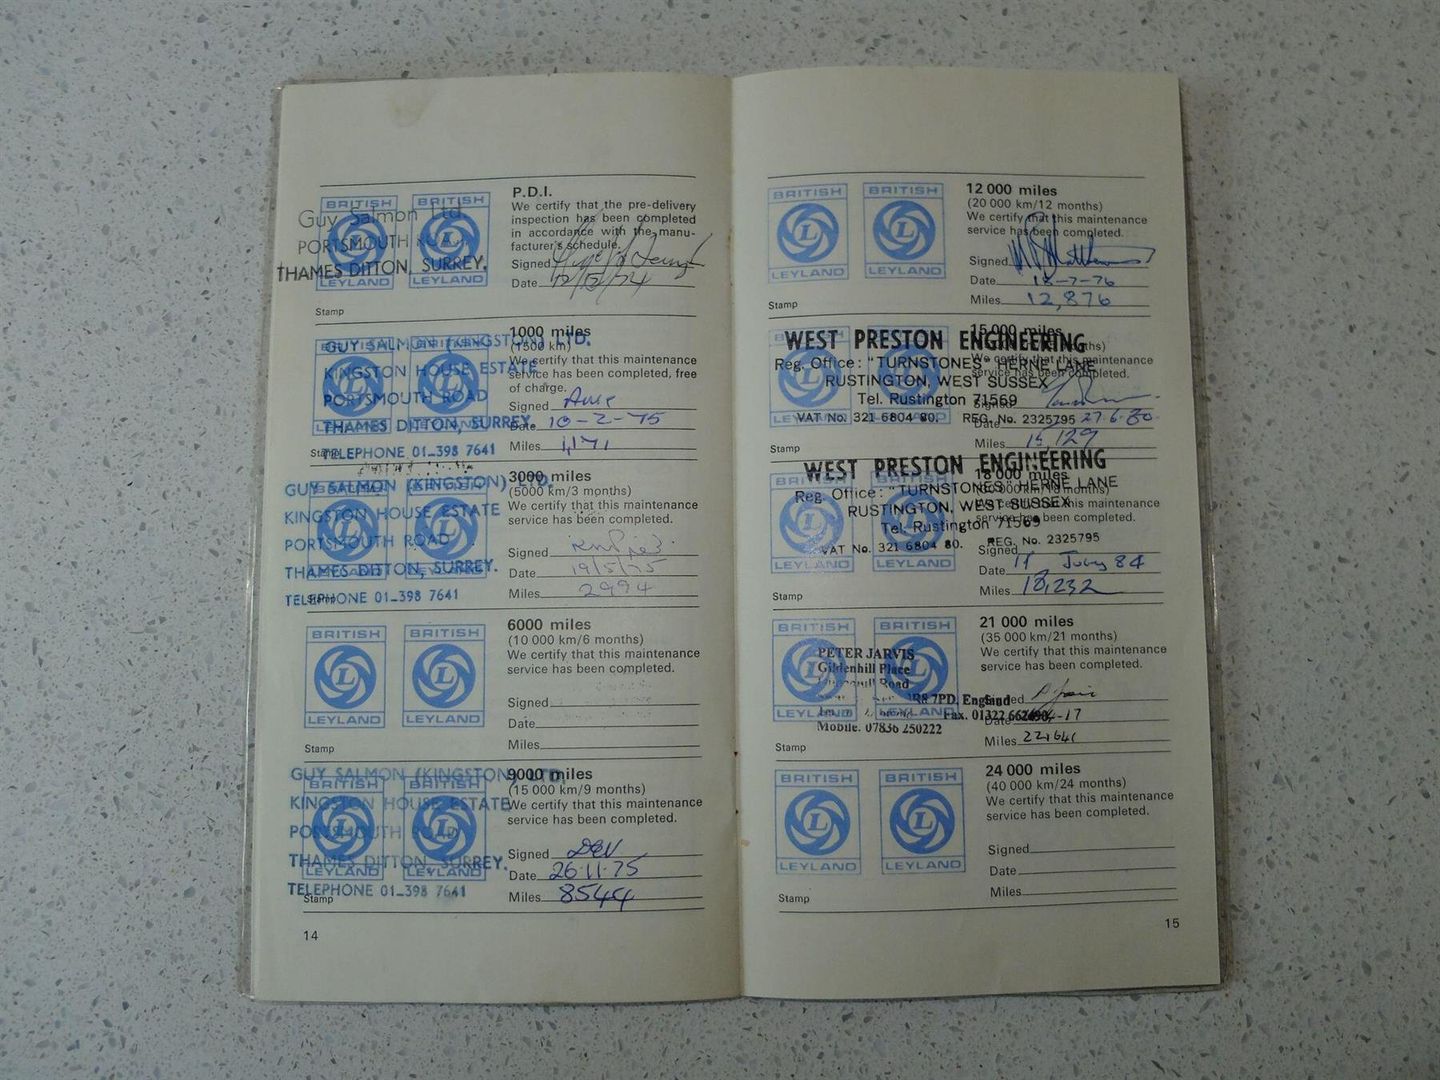 BRITISH BRITISH
LEYLAND LEYLAND
Guy Salmon Ltd.
PORTSMOUTH ROAD,
THAMES DITTON, SURREY.
Stamp
P.D.I.
We certify that the pre-delivery
inspection has been completed
in accordance with the manu-
facturer's schedule.
Signed
Date 12/12/74
BRITISH BRITISH
LEYLAND LEYLAND
GUY SALMON (KINGSTON) LTD.
KINGSTON HOUSE ESTATE
PORTSMOUTH ROAD
THAMES DITTON, SURREY.
TELEPHONE 01-398 7641
Stamp
1000 miles
(1500 km)
We certify that this maintenance
service has been completed, free
of charge.
Signed
Date 10-2-75
Miles 1,171
BRITISH BRITISH
LEYLAND LEYLAND
GUY SALMON (KINGSTON) LTD.
KINGSTON HOUSE ESTATE
PORTSMOUTH ROAD
THAMES DITTON, SURREY.
TELEPHONE 01-398 7641
Stamp
3000 miles
(5000 km/3 months)
We certify that this maintenance
service has been completed.
Signed
Date 19/5/75
Miles 2994
BRITISH BRITISH
L L
LEYLAND LEYLAND
Stamp
6000 miles
(10 000 km/6 months)
We certify that this maintenance
service has been completed.
Signed
Date
Miles
BRITISH BRITISH
LEYLAND LEYLAND
GUY SALMON (KINGSTON) LTD.
KINGSTON HOUSE ESTATE
PORTSMOUTH ROAD
THAMES DITTON, SURREY.
TELEPHONE 01-398 7641
Stamp
9000 miles
(15 000 km/9 months)
We certify that this maintenance
service has been completed.
Signed
Date 26·11·75
Miles 8544
14
BRITISH BRITISH
L L
LEYLAND LEYLAND
Stamp
12 000 miles
(20 000 km/12 months)
We certify that this maintenance
service has been completed.
Signed
Date 18-7-76
Miles 12,876
WEST PRESTON ENGINEERING
Reg. Office: "TURNSTONES" HERNE LANE
RUSTINGTON, WEST SUSSEX
Tel. Rustington 71569
VAT No. 321 6804 80. REG. No. 2325795
Stamp
15 000 miles
We certify that this maintenance
service has been completed.
Signed
Date 27.6.80
Miles 15,129
WEST PRESTON ENGINEERING
Reg. Office: "TURNSTONES" HERNE LANE
RUSTINGTON, WEST SUSSEX
Tel. Rustington 71569
VAT No. 321 6804 80. REG. No. 2325795
BRITISH
LEYLAND LEYLAND
Stamp
18 000 miles
We certify that this maintenance
service has been completed.
Signed
Date 11 July 84
Miles 18,232
BRITISH BRITISH
LEYLAND LEYLAND
PETER JARVIS
Gildenhill Place
Road
7PD, England
Fax. 01322
Mobile. 07836 250222
Stamp
21 000 miles
(35 000 km/21 months)
We certify that this maintenance
service has been completed.
Signed
Date
Miles 22,641
BRITISH BRITISH
L L
LEYLAND LEYLAND
Stamp
24 000 miles
(40 000 km/24 months)
We certify that this maintenance
service has been completed.
Signed
Date
Miles
15